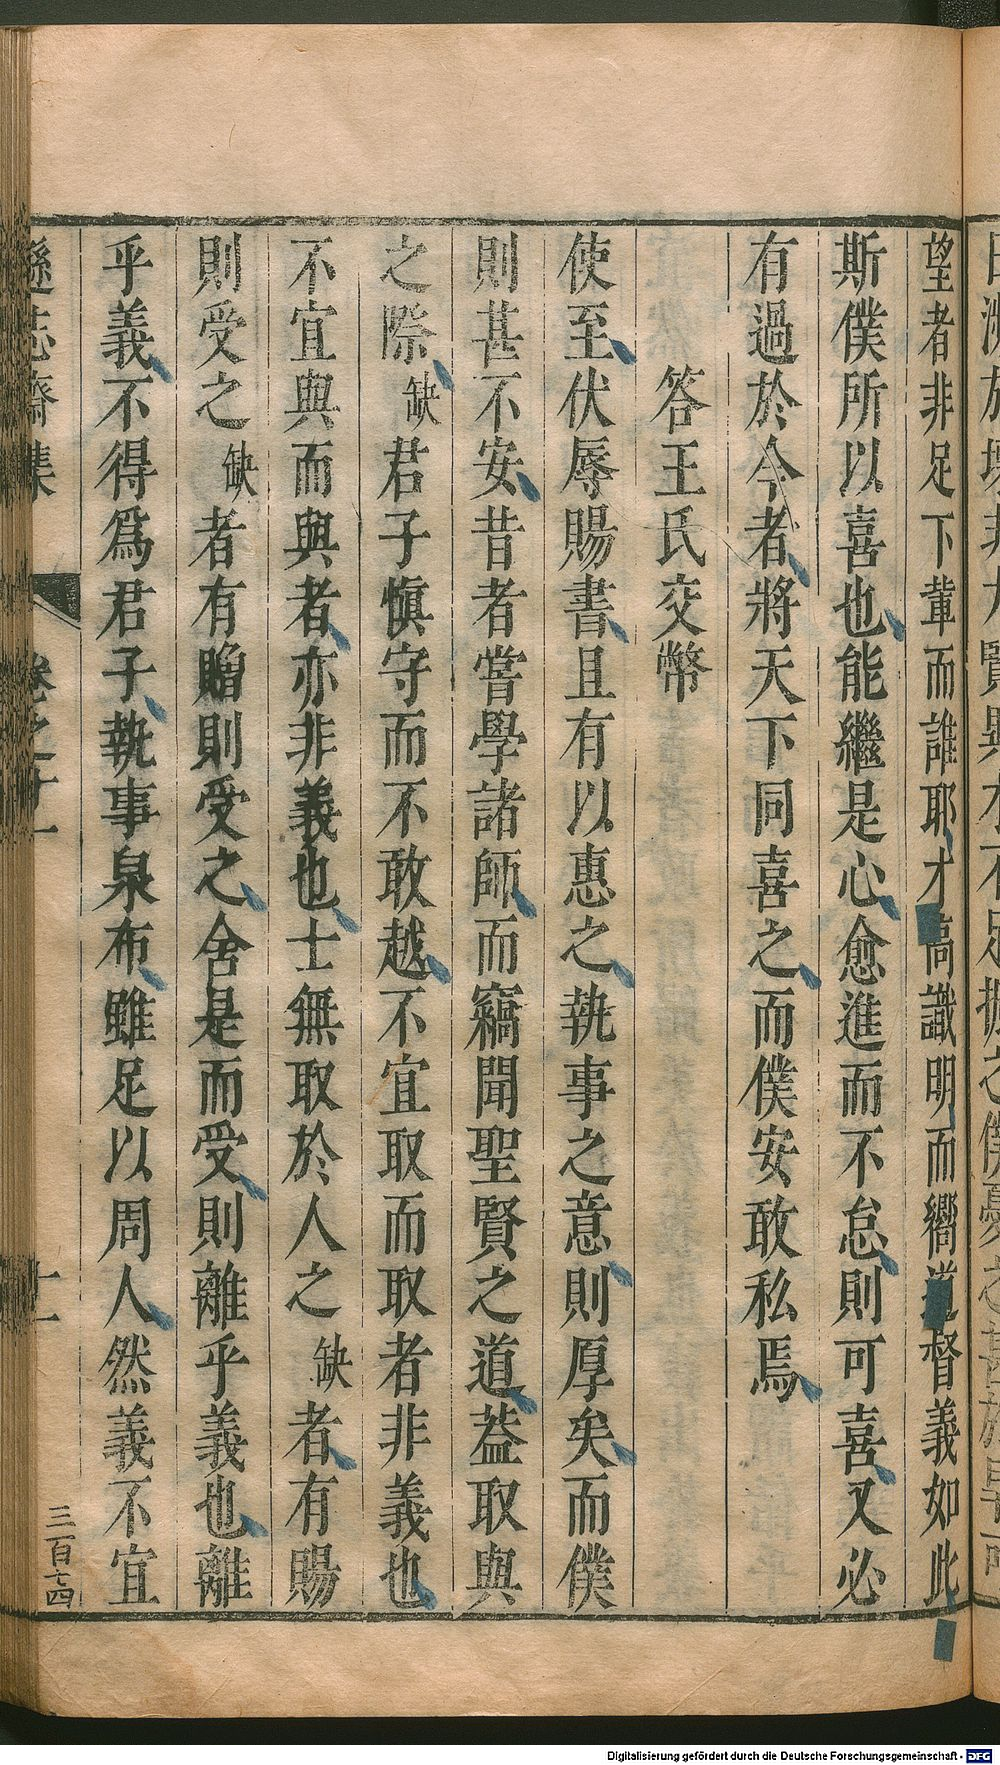 望者非足下輩而誰耶才高識明而嚮道督義如此
斯僕所以喜也能繼是心愈進而不怠則可喜又必
有過於今者將天下同喜之而僕安敢私焉
答王氏交幣
使至伏辱賜書且有以惠之執事之意則厚矣而僕
則甚不安昔者嘗學諸師而竊聞聖賢之道葢取與
之際缺君子慎守而不敢越不宜取而取者非義也
不宜與而與者亦非義也士無取於人之缺者有賜
則受之缺者有贈則受之舍是而受則離乎義也離
乎義不得爲君子執事泉布雖足以周人然義不宜
遜志齋集 卷之十一 十一 三百十四
Digitalisierung gefördert durch die Deutsche Forschungsgemeinschaft - DFG